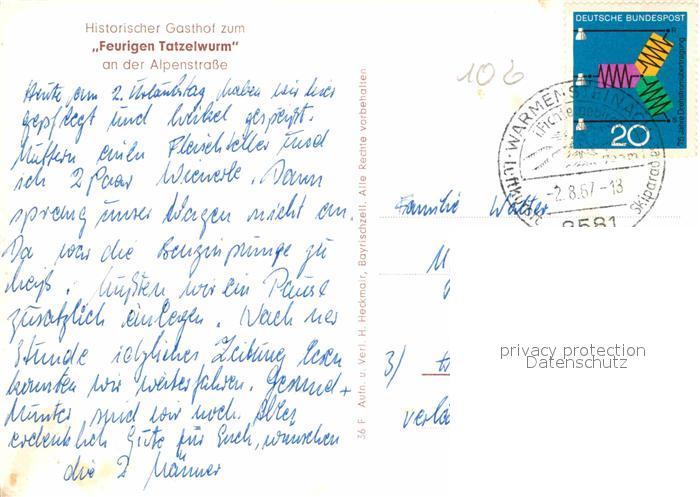 Historischer Gasthof zum
„Feurigen Tatzelwurm“
an der Alpenstraße
Heute am 2. Urlaubstag haben wir hier
gepflegt und gespeist.
Muttern einen Fleischteller und
ich 2 Paar Wienerle. Dann
sprang unser Wagen nicht an.
Da war die Benzinpumpe zu
heiß. Mußten wir ein Pause
zusätzlich einlegen. Nach ner
Stunde Zeitung lesen
konnten wir weiterfahren. Gesund +
munter sind wir noch. Alles
erdenklich Gute für Euch, wünschen
die 2 Männer
36 F Aufn. u. Verl. H. Heckmair, Bayrischzell. Alle Rechte vorbehalten
106
DEUTSCHE BUNDESPOST
75 Jahre Drehstromübertragung
R
S
20
WARMENSTEINACH
Fichtelgebirge
Luftkurort
Skiparadies
-2.8.67-13
8581
Familie Walter
M
3)
privacy protection
Datenschutz